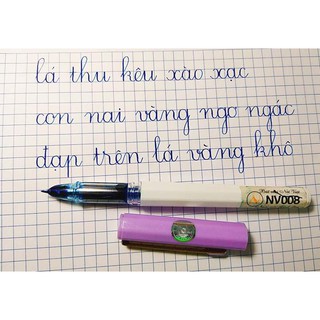 lá thu kêu xào xạc
con nai vàng ngơ ngác
đạp trên lá vàng khô
NV008